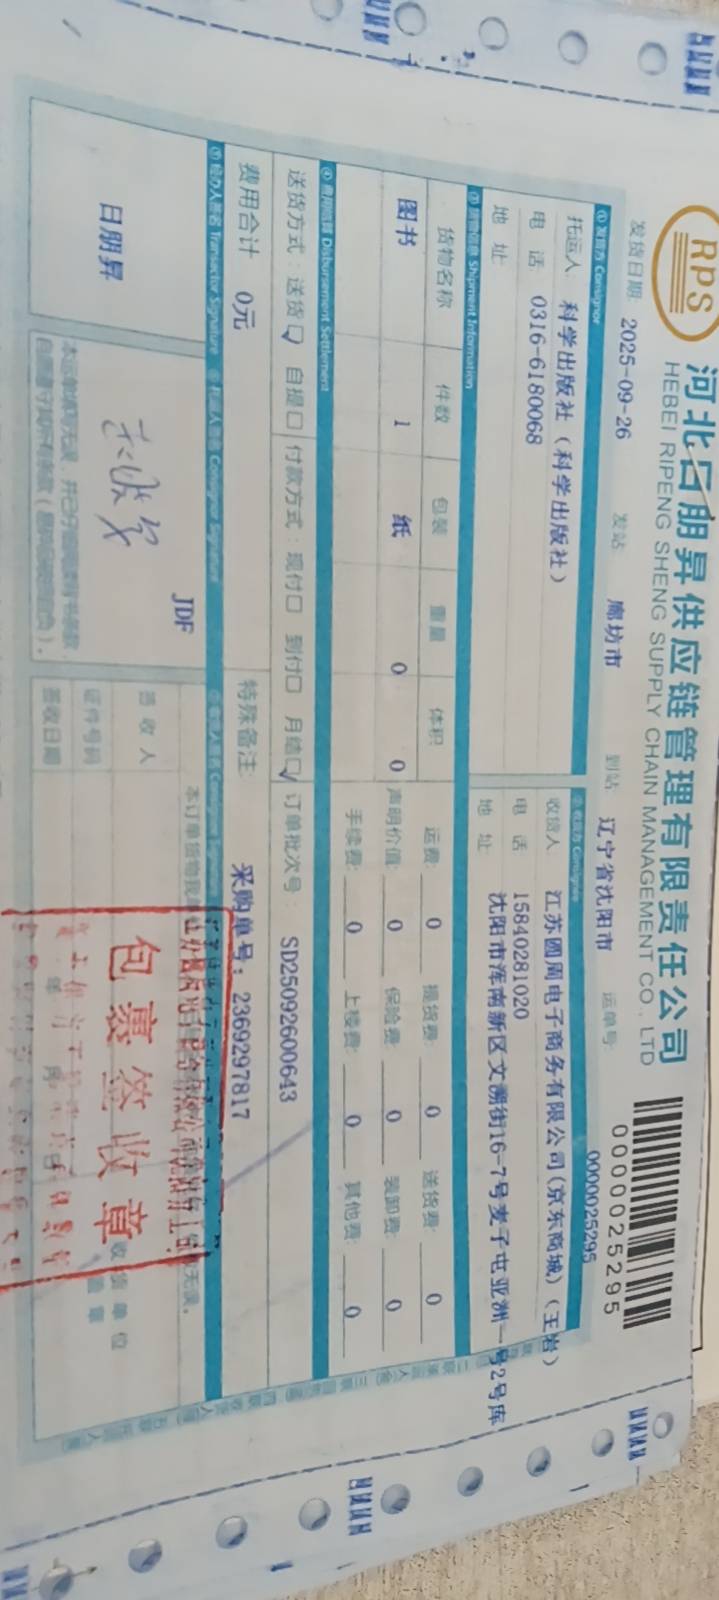 RPS 河北日朋昇供应链管理有限责任公司
HEBEI RIPENG SHENG SUPPLY CHAIN MANAGEMENT CO., LTD
0000025295
发货日期: 2025-09-26 发站 廊坊市 到站 辽宁省沈阳市 运单号: 0000025295
① 发货方 Consignor
托运人 科学出版社（科学出版社）
电 话 0316-6180068
地 址
② 收货方 Consignee
收货人 江苏圆周电子商务有限公司(京东商城)（王岩）
电 话 15840281020
地 址 沈阳市浑南新区文溯街16-7号麦子屯亚洲一号2号库
③ 货物信息 Shipment Information
货物名称 件数 包装 重量 体积
图书 1 纸 0 0
运费: 0 提货费: 0 送货费: 0
声明价值: 0 保险费: 0 装卸费: 0
手续费: 0 上楼费: 0 其他费: 0
④ 费用结算 Disbursement Settlement
送货方式: 送货 自提 付款方式: 现付 到付 月结 订单批次号: SD25092600643
费用合计 0元 特殊备注: 采购单号: 2369297817
⑤ 经办人签名 Transactor Signature
Consignor Signature
日朋昇
JDF
本订单货物我
无误。
签 收 人
证件号码
签收日期
收 货 单 位
盖 章
包裹签收章